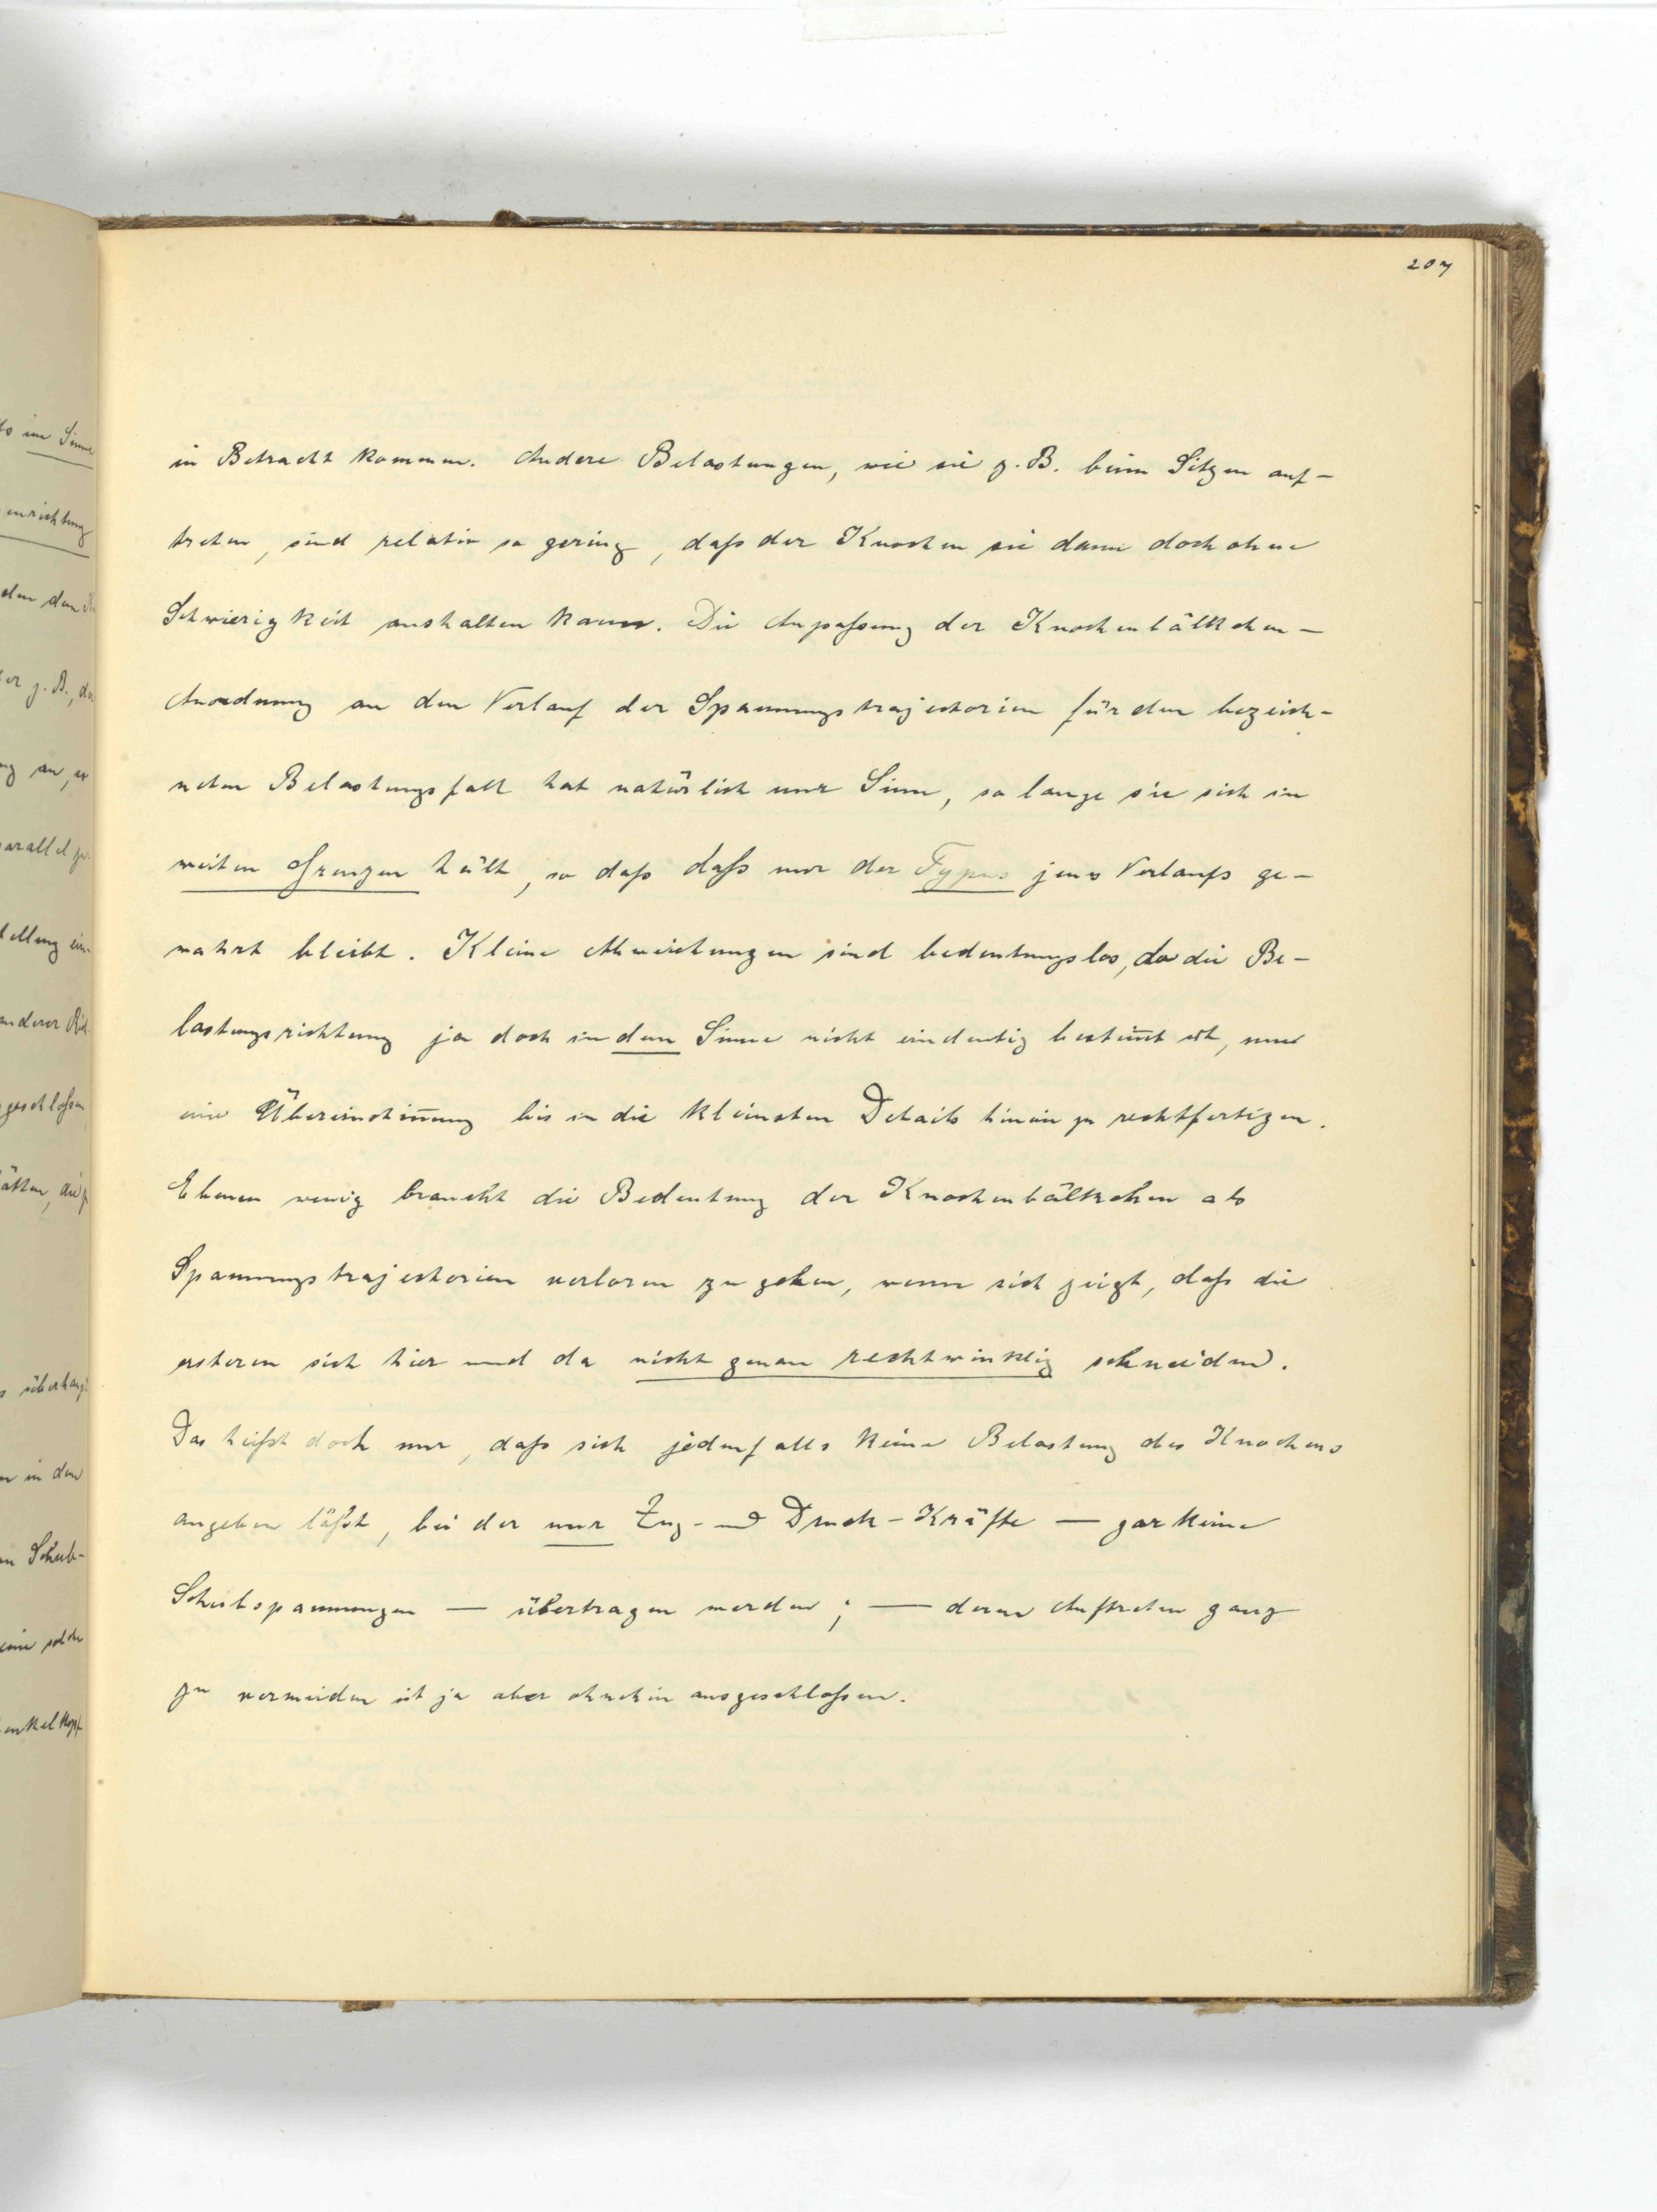 207
in Betracht kommen. Andere Belastungen, wie sie z. B. beim Sitzen auf-
treten, sind relativ so gering, daß der Knochen sie dann doch ohne
Schwierigkeit aushalten kann. Die Anpaßung der Knochenbälkchen-
Anordnung an den Verlauf der Spannungstrajectorien für den bezeich-
neten Belastungsfall hat natürlich nur Sinn, so lange sie sich in
weiten Grenzen hält, so daß daß nur der Typus jenes Verlaufs ge-
wahrt bleibt. Kleine Abweichungen sind bedeutungslos, da die Be-
lastungsrichtung ja doch in dem Sinne nicht eindeutig bestim̄t ist, um
eine Übereinstim̄ung bis in die kleinsten Details hinein zu rechtfertigen.
Ebenso wenig braucht die Bedeutung der Knochenbälkchen als
Spannungstrajectorien verloren zu gehen, wenn sich zeigt, daß die
ersteren sich hier und da nicht genau rechtwinklig schneiden.
Das heißt doch nur, daß sich jedenfalls keine Belastung des Knochens
angeben läßt, bei der nur Zug- und Druck-Kräfte — gar keine
Schubspannungen — übertragen werden; — deren Auftreten ganz
zu vermeiden ist ja aber ohnehin ausgeschloßen.